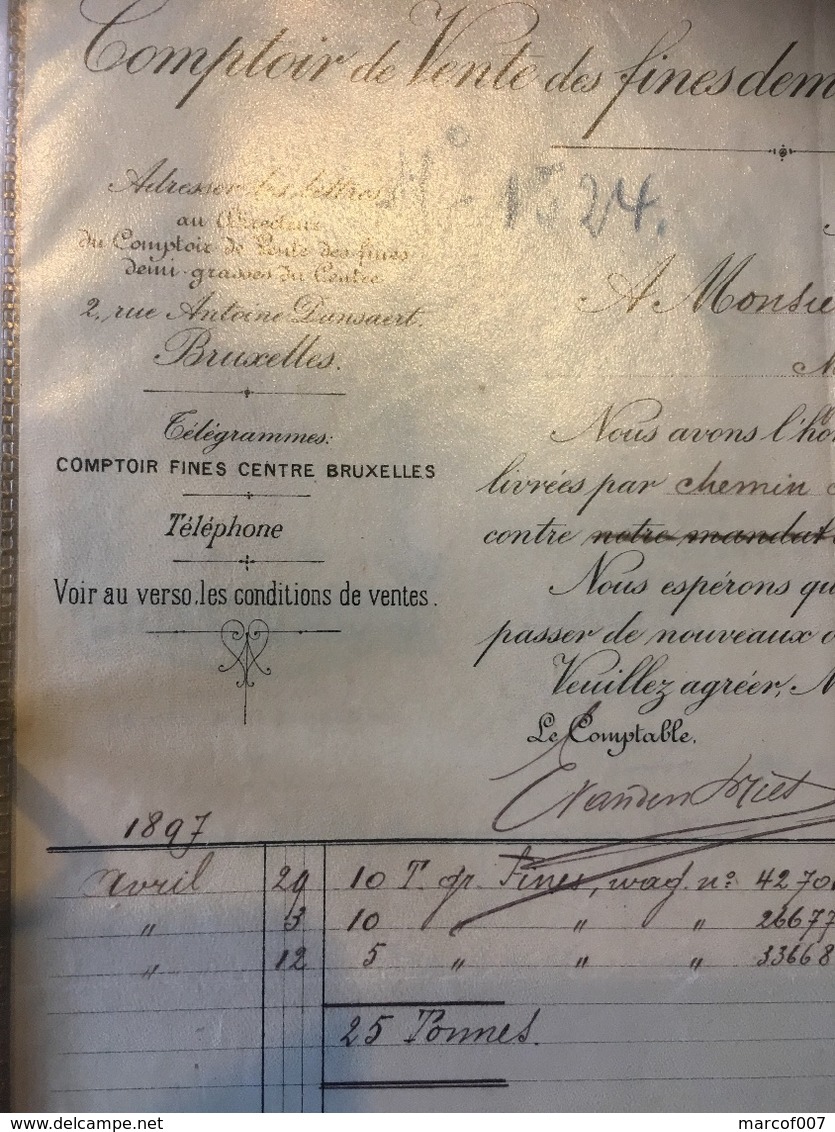 Comptoir de Vente des fines dem
N° 1524.
Adresser les lettres
au Directeur
du Comptoir de Vente des fines
demi-grasses du Centre
2, rue Antoine Dansaert.
Bruxelles.
Télégrammes:
COMPTOIR FINES CENTRE BRUXELLES
Téléphone
Voir au verso.les conditions de ventes.
A Monsie
Nous avons l'ho
livrées par chemin
contre notre mandat
Nous espérons qu
passer de nouveaux o
Veuillez agréer, M
Le Comptable.
1897
Avril 29 10 T. gr Fines, wag. n°: 4270
" 3 10 " " " 26677
" 12 5 " " " 33668
25 Tonnes.
marcof007